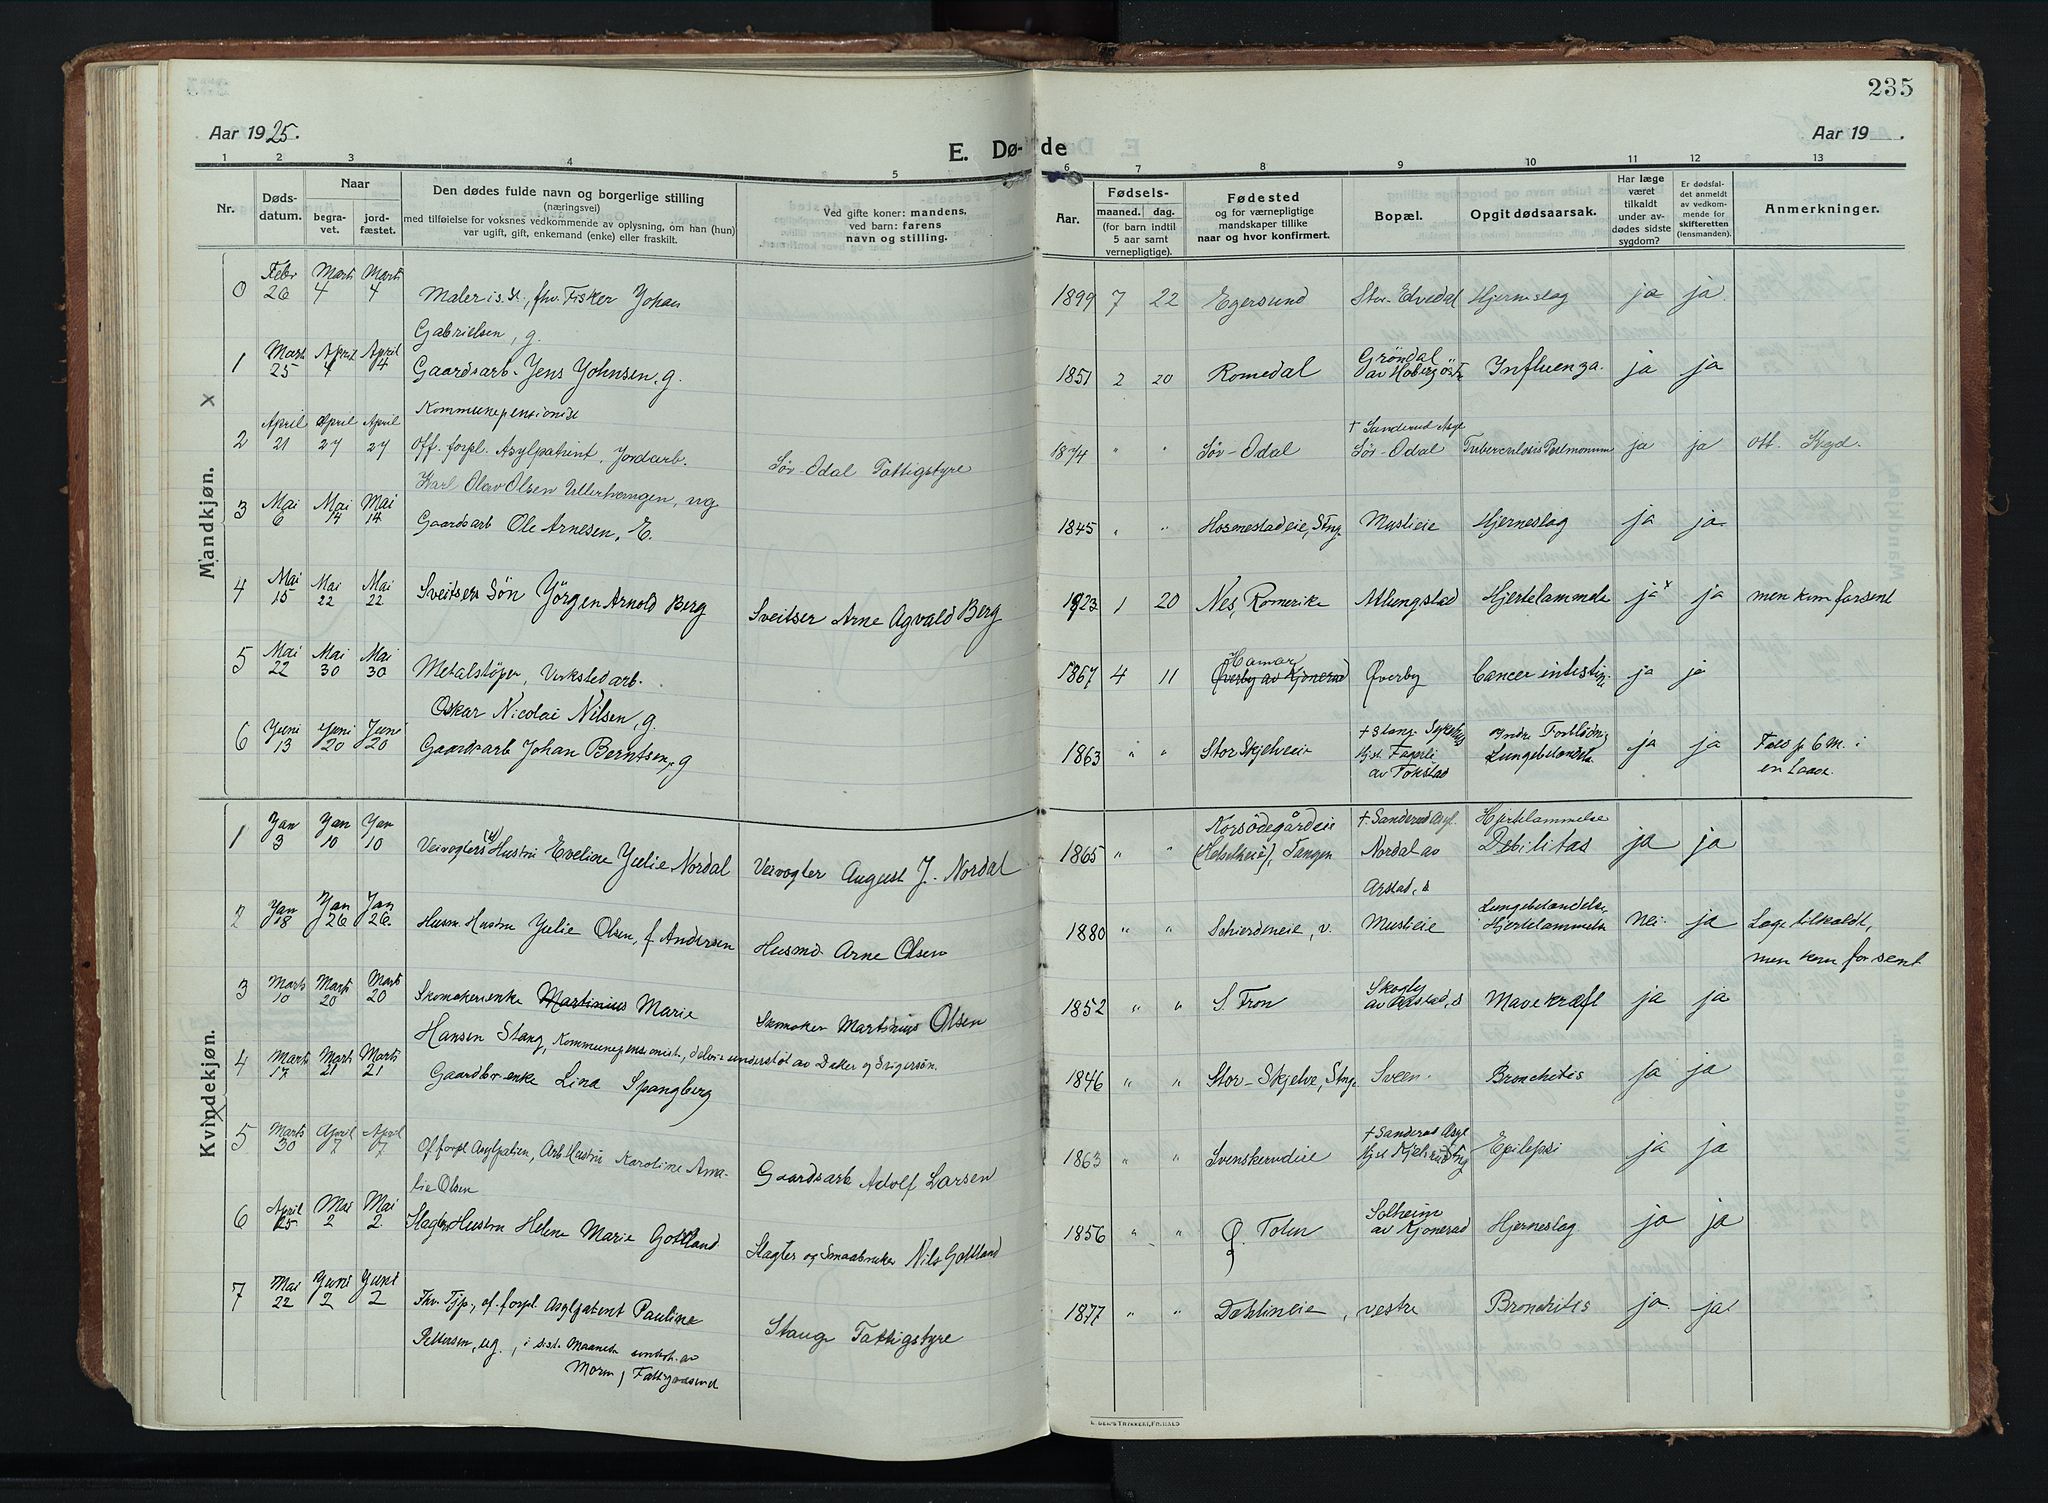 235
Aar 1925.
E. Dø-
de
Aar 19 .
1 2 3 4 5 6 7 8 9 10 11 12 13
Nr.
Døds-
datum.
Naar
begra-
vet.
jord-
fæstet.
Den dødes fulde navn og borgerlige stilling
(næringsvei)
med tilføielse for voksnes vedkommende av oplysning, om han (hun)
var ugift, gift, enkemand (enke) eller fraskilt.
Ved gifte koner: mandens,
ved barn: farens
navn og stilling.
Aar.
Fødsels-
maaned. dag.
(for barn indtil
5 aar samt
vernepligtige).
Fødested
og for værnepligtige
mandskaper tillike
naar og hvor konfirmert.
Bopæl.
Opgit dødsaarsak.
Har læge
været
tilkaldt
under av-
dødes sidste
sygdom?
Er dødsfal-
det anmeldt
av vedkom-
mende for
skifteretten
(lensmanden).
Anmerkninger.
Mandkjøn.
x
0 Febr 26 Marts 4 Marts 4 Maler is. st., fhv. Fisker Johan
Gabrielsen, g. 1899 7 22 Egersund Stor-Elvedal Hjerneslag ja ja
1 Marts 25 April 4 April 4 Gaardsarb. Jens Johnsen, g.
Kommunepensionist 1851 2 20 Romedal Grøndal
av Hoberg østre Influenza. ja ja
2 April 21 April 27 April 27 Off. forpl. Asylpatient, Jordarb.
Karl Olav Olsen Ullerhavngen, ug Sör-Odal Fattigstyre 1874 " " Sör-Odal † Sanderud Asyl
Sör-Odal ja ja ott. Kgd.
3 Mai 6 Mai 14 Mai 14 Gaardsarb Ole Arnesen, E. 1845 " " Hosmestadeie, Stng. Muslieie Hjerneslag ja ja
4 Mai 15 Mai 22 Mai 22 Sveitsers Søn Jørgen Arnold Berg Sveitser Arne Agvald Berg 1923 1 20 Nes, Romerike Atlungstad Hjertelammelse ja x ja men kom forsent
5 Mai 22 Mai 30 Mai 30 Metalstøper, Verkstedarb.
Oskar Nicolai Nilsen, g. 1867 4 11 Hamar
Øverby av Kjonerud Øverby Cancer intestin. ja ja
6 Juni 13 Juni 20 Juni 20 Gaardsarb Johan Berntsen, g 1863 " " Stor Skjelveie † Stang Sykehus
Hjst. Fagerli
av Tokstad Indre Forblødn.
Lungebetændelse ja ja Fald p 6 M. i
en Laave.
Kvindekjøn.
1 Jan 3 Jan 10 Jan 10 Veivogters Hustru Eveline Julie Nordal Veivogter August J. Nordal 1865 " " Korsødegårdeie
(Helselheie), Tangen † Sanderud Asyl.
Nordal av
Arstad, s Hjertelammelse
Debilitas ja ja
2 Jan 18 Jan 26 Jan 26. Husm. Hustru Julie Olsen, f. Andersen Husmd. Arne Olsen 1880 " " Schierdeneie, v. Muslieie Lungebetændelse,
Hjertelammelse Nei ja Læge tilkaldt,
men kom for sent
3 Marts 10 Marts 20 Marts 20 Skomakerenke Martinius Marie
Hansen Stang, Kommunepensionist, delvis understøt av Datter og Svigersøn. Skomaker Martinius Olsen 1852 " " S. Fron Skogly
av Arstad, s Mavekræft ja ja
4 Marts 17 Marts 21 Marts 21 Gaardbr. enke Lina Spangberg 1846 " " Stor-Skjelve, Stng. Sveen. Bronchitis ja ja
5 Marts 30 April 7 April 7 Of. forpl Asylpatien, Arb Hustru Karoline Ama-
lie Olsen Gaardsarb Adolf Larsen 1863 " " Svenskerudeie † Sanderud Asyl
Epilepsi ja ja
6 April 25 Mai 2 Mai 2. Slagters Hustru Helene Marie Gotland Slagter og Smaabruker Nils Gottland 1856 " " Ø. Toten Solheim
av Kjonerud Hjerneslag ja ja
7 Mai 22 Juni 2 Juni 2 Fhv. Tjp., of. forpl. Asylpatient Pauline
Pettersen, ug., i sidst. Maaneder underh. av
Moren, Fattigunderst Stange Fattigstyre 1877 " " Dahlineie, vestre Bronchitis ja ja